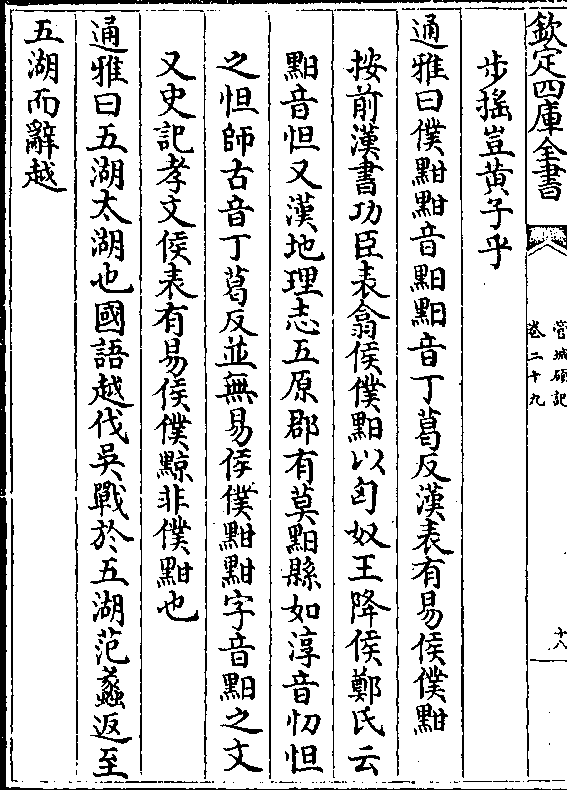 欽定四庫全書
管城碩記
卷二十九
十八
步搖豈黃子乎
通雅曰僕黚黚音䵣䵣音丁葛反漢表有易侯僕黚
按前漢書功臣表翕侯僕䵣以匈奴王降侯鄭氏云
䵣音怛又漢地理志五原郡有莫䵣縣如淳音忉怛
之怛師古音丁葛反並無易侯僕黚黚字音䵣之文
又史記孝文侯表有易侯僕黥非僕黚也
通雅曰五湖太湖也國語越伐吳戰於五湖范蠡返至
五湖而辭越